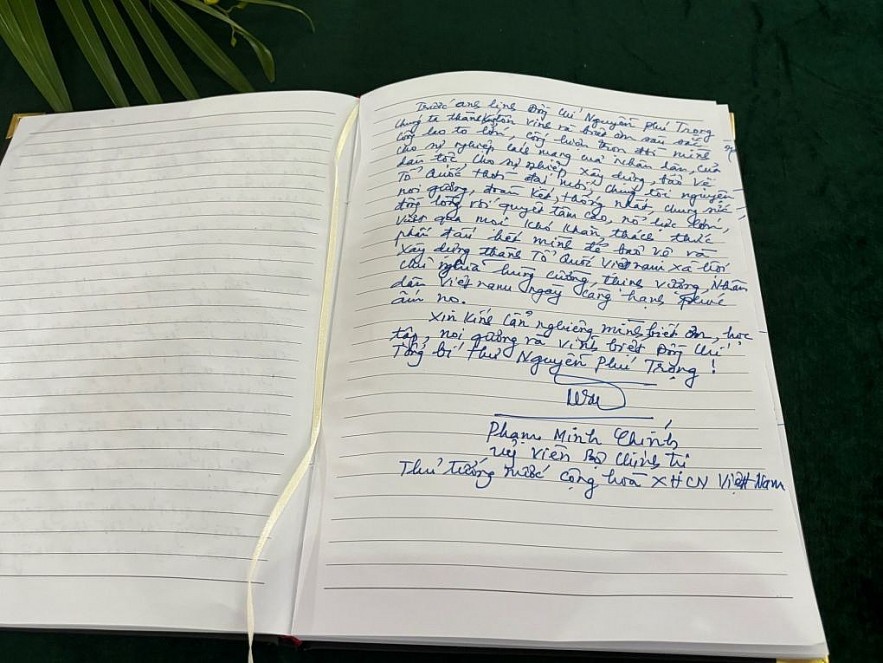 Trước anh linh Đồng chí Nguyễn Phú Trọng
Chúng ta thành kính tôn vinh và biết ơn sâu sắc
công lao to lớn, cống hiến trọn đời mình
cho sự nghiệp cách mạng của Nhân dân, của
dân tộc, cho sự nghiệp xây dựng, bảo vệ
Tổ Quốc thời đại mới, chúng tôi nguyện
noi gương, đoàn kết, thống nhất, chung sức
đồng lòng với quyết tâm cao, nỗ lực lớn,
vượt qua mọi khó khăn thách thức
phấn đấu hết mình để bảo vệ và
xây dựng thành Tổ Quốc Việt nam xã hội
chủ nghĩa hùng cường, thịnh vượng, Nhân
dân Việt nam ngày càng hạnh phúc
ấm no.
Xin kính cẩn nghiêng mình biết ơn, học
tập, noi gương và vĩnh biệt Đồng chí
Tổng bí thư Nguyễn Phú Trọng!
Phạm Minh Chính
uỷ viên Bộ Chính trị
Thủ tướng nước cộng hoà XHCN Việt Nam